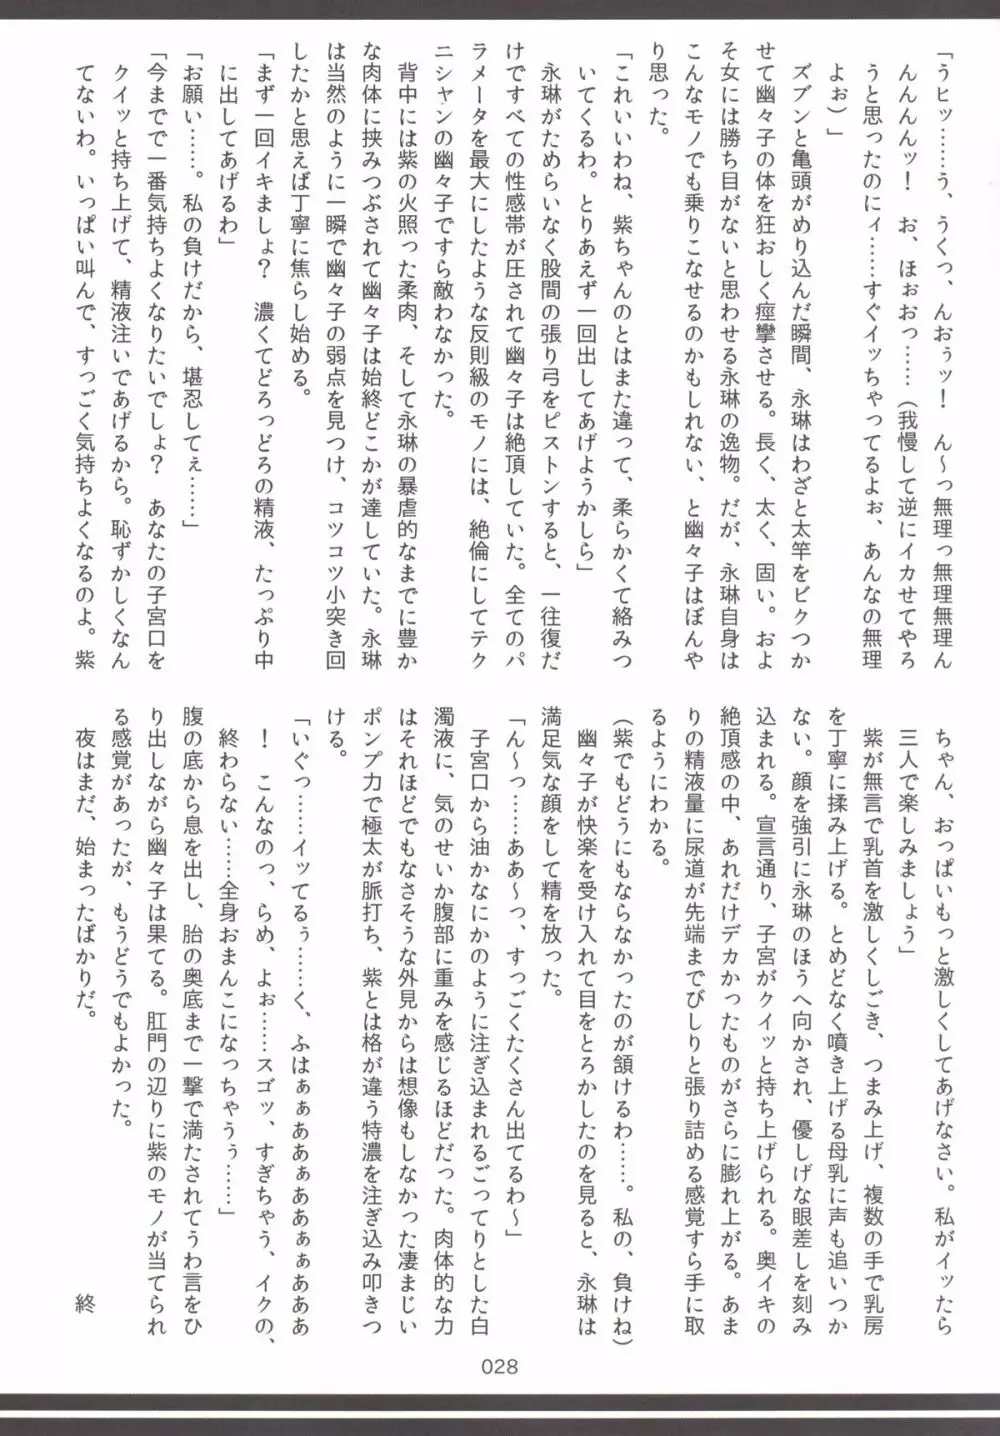 「うヒッ……う、うくっ、んおぅッ！　ん〜っ無理っ無理無理ん
んんんんッ！　お、ほぉおっ……（我慢して逆にイカせてやろ
うと思ったのにィ……すぐイッちゃってるよぉ、あんなの無理
よぉ）」
ズブンと亀頭がめり込んだ瞬間、永琳はわざと太竿をビクつか
せて幽々子の体を狂おしく痙攣させる。長く、太く、固い。およ
そ女には勝ち目がないと思わせる永琳の逸物。だが、永琳自身は
こんなモノでも乗りこなせるのかもしれない、と幽々子はぼんや
り思った。
「これいいわね、紫ちゃんのとはまた違って、柔らかくて絡みつ
いてくるわ。とりあえず一回出してあげようかしら」
永琳がためらいなく股間の張り弓をピストンすると、一往復だ
けですべての性感帯が圧されて幽々子は絶頂していた。全てのパ
ラメータを最大にしたような反則級のモノには、絶倫にしてテク
ニシャンの幽々子ですら敵わなかった。
背中には紫の火照った柔肉、そして永琳の暴虐的なまでに豊か
な肉体に挟みつぶされて幽々子は始終どこかが達していた。永琳
は当然のように一瞬で幽々子の弱点を見つけ、コツコツ小突き回
したかと思えば丁寧に焦らし始める。
「まず一回イキましょ？　濃くてどろっどろの精液、たっぷり中
に出してあげるわ」
「お願い……。私の負けだから、堪忍してぇ……」
「今までで一番気持ちよくなりたいでしょ？　あなたの子宮口を
クイッと持ち上げて、精液注いであげるから。恥ずかしくなん
てないわ。いっぱい叫んで、すっごく気持ちよくなるのよ。紫
ちゃん、おっぱいもっと激しくしてあげなさい。私がイッたら
三人で楽しみましょう」
紫が無言で乳首を激しくしごき、つまみ上げ、複数の手で乳房
を丁寧に揉み上げる。とめどなく噴き上げる母乳に声も追いつか
ない。顔を強引に永琳のほうへ向かされ、優しげな眼差しを刻み
込まれる。宣言通り、子宮がクイッと持ち上げられる。奥イキの
絶頂感の中、あれだけデカかったものがさらに膨れ上がる。あま
りの精液量に尿道が先端までびしりと張り詰める感覚すら手に取
るようにわかる。
（紫でもどうにもならなかったのが頷けるわ……。私の、負けね）
幽々子が快楽を受け入れて目をとろかしたのを見ると、永琳は
満足気な顔をして精を放った。
「ん〜っ……ああ〜っ、すっごくたくさん出てるわ〜」
子宮口から油かなにかのように注ぎ込まれるごってりとした白
濁液に、気のせいか腹部に重みを感じるほどだった。肉体的な力
はそれほどでもなさそうな外見からは想像もしなかった凄まじい
ポンプ力で極太が脈打ち、紫とは格が違う特濃を注ぎ込み叩きつ
ける。
「いぐっ……イッてるぅ……く、ふはぁぁああぁああぁぁあああ
！　こんなのっ、らめ、よぉ……スゴッ、すぎちゃう、イクの、
終わらない……全身おまんこになっちゃうぅ……」
腹の底から息を出し、胎の奥底まで一撃で満たされてうわ言をひ
り出しながら幽々子は果てる。肛門の辺りに紫のモノが当てられ
る感覚があったが、もうどうでもよかった。
夜はまだ、始まったばかりだ。
終
028